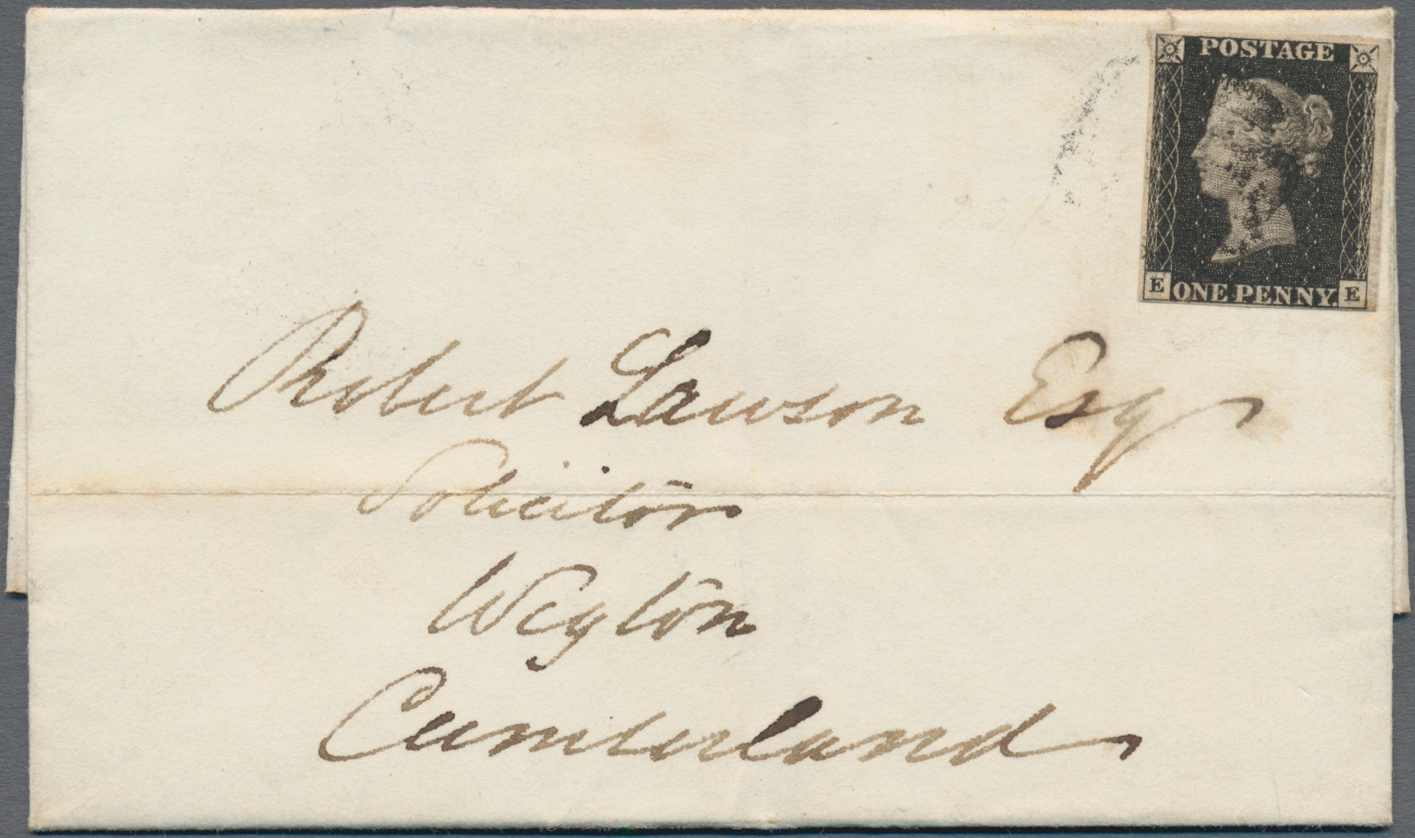 POSTAGE
E ONE PENNY. E
Robert Lawson Esq
Solicitor
Wigton
Cumberland